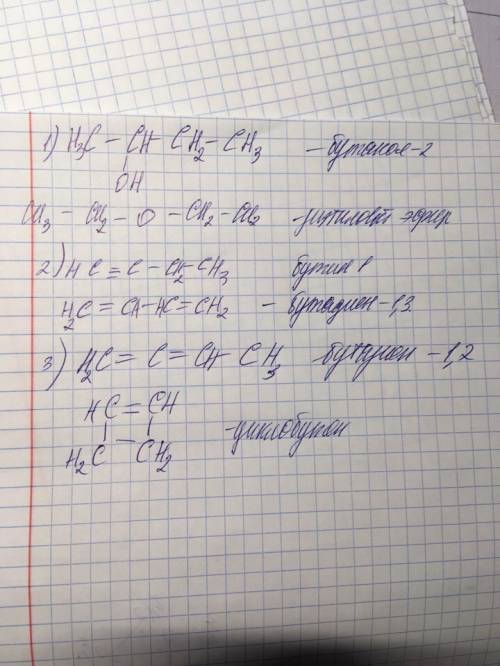 1) H₃C – CH – CH₂ – CH₃ – бутанол-2
OH
CH₃ – CH₂ – O – CH₂ – CH₂ – эфир
2) HC ≡ C – CH₂ – CH₃ бутин 1
H₂C = CH – HC = CH₂ – бутадиен-1,3
3) H₂C = C = CH CH₃ – 1,2
HC = CH
H₂C – CH₂ – циклобутен